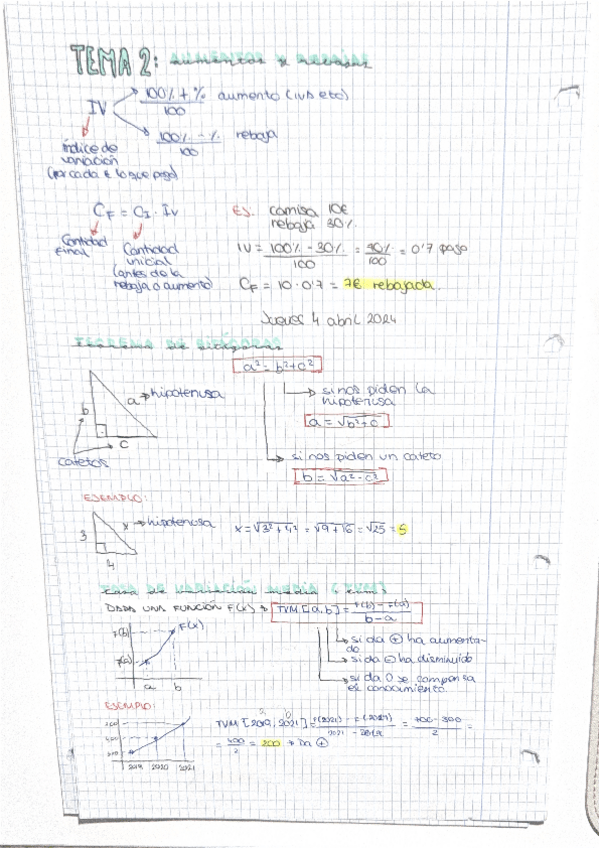 TEMA 2: aumentos y rebajas
IV
100% + %
100
aumento (IVA etc)
100% - %
100
rebaja
índice de
variación
(por cada € lo que pago)
CF = CI · IV
Cantidad
final
Cantidad
inicial
(antes de la
rebaja o aumento)
ES: camisa 10€
rebaja 30%
IV = 100% - 30% / 100 = 70% / 100 = 0'7 pago
CF = 10 · 0'7 = 7€ rebajada.
Jueves 4 abril 2024
TEOREMA DE PITÁGORAS
a² = b² + c²
a → hipotenusa
b
c
catetos
si nos piden la
hipotenusa
a = √b² + c
si nos piden un cateto
b = √a² - c²
EJEMPLO:
3
x → hipotenusa
4
x = √3² + 4² = √9 + 16 = √25 = 5
tasa de variación media (TVM)
DADA UNA FUNCIÓN F(x) → TVM [a, b] = F(b) - F(a) / b - a
F(b)
F(a)
F(x)
a b
si da ⊕ ha aumenta-
do
si da ⊖ ha disminuido
si da 0 se compensa
EJEMPLO:
2019 2020 2021
TVM [2019, 2021] =
= 400 / 2 = 200